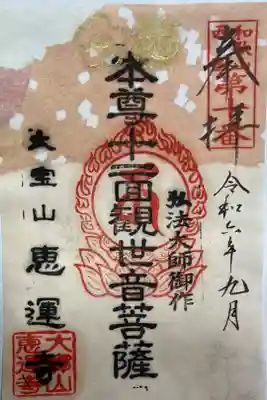 奉拝
令和六年九月
弘法大師御作
本尊十一面観世音菩薩
大宝山恵運寺
大宝山
恵運寺